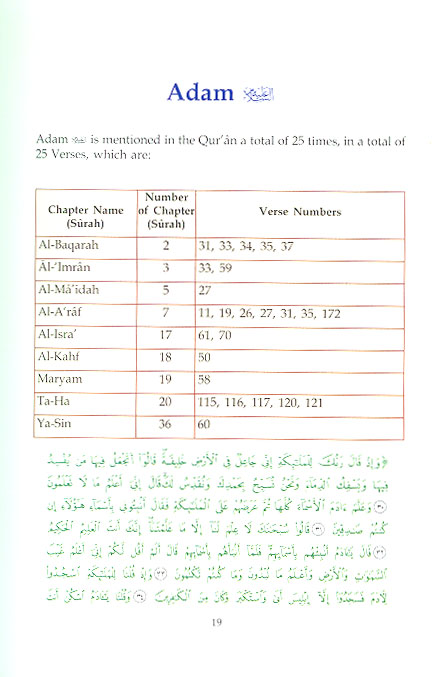 Adam عليه السلام
Adam عليه السلام is mentioned in the Qur'ân a total of 25 times, in a total of
25 Verses, which are:
Chapter Name (Sûrah) Number of Chapter (Sûrah) Verse Numbers
Al-Baqarah 2 31, 33, 34, 35, 37
Âl-'Imrân 3 33, 59
Al-Mâ'idah 5 27
Al-A'râf 7 11, 19, 26, 27, 31, 35, 172
Al-Isra' 17 61, 70
Al-Kahf 18 50
Maryam 19 58
Ta-Ha 20 115, 116, 117, 120, 121
Ya-Sin 36 60
﴿وَإِذْ قَالَ رَبُّكَ لِلْمَلَٰٓئِكَةِ إِنِّي جَاعِلٌ فِي ٱلْأَرْضِ خَلِيفَةً قَالُوٓا۟ أَتَجْعَلُ فِيهَا مَن يُفْسِدُ
فِيهَا وَيَسْفِكُ ٱلدِّمَآءَ وَنَحْنُ نُسَبِّحُ بِحَمْدِكَ وَنُقَدِّسُ لَكَ قَالَ إِنِّيٓ أَعْلَمُ مَا لَا تَعْلَمُونَ
٣٠ وَعَلَّمَ ءَادَمَ ٱلْأَسْمَآءَ كُلَّهَا ثُمَّ عَرَضَهُمْ عَلَى ٱلْمَلَٰٓئِكَةِ فَقَالَ أَنۢبِـُٔونِي بِأَسْمَآءِ هَٰٓؤُلَآءِ إِن
كُنتُمْ صَٰدِقِينَ ٣١ قَالُوا۟ سُبْحَٰنَكَ لَا عِلْمَ لَنَآ إِلَّا مَا عَلَّمْتَنَآ إِنَّكَ أَنتَ ٱلْعَلِيمُ ٱلْحَكِيمُ
٣٢ قَالَ يَٰٓـَٔادَمُ أَنۢبِئْهُم بِأَسْمَآئِهِمْ فَلَمَّآ أَنۢبَأَهُم بِأَسْمَآئِهِمْ قَالَ أَلَمْ أَقُل لَّكُمْ إِنِّيٓ أَعْلَمُ غَيْبَ
ٱلسَّمَٰوَٰتِ وَٱلْأَرْضِ وَأَعْلَمُ مَا تُبْدُونَ وَمَا كُنتُمْ تَكْتُمُونَ ٣٣ وَإِذْ قُلْنَا لِلْمَلَٰٓئِكَةِ ٱسْجُدُوا۟
لِـَٔادَمَ فَسَجَدُوٓا۟ إِلَّآ إِبْلِيسَ أَبَىٰ وَٱسْتَكْبَرَ وَكَانَ مِنَ ٱلْكَٰفِرِينَ ٣٤ وَقُلْنَا يَٰٓـَٔادَمُ ٱسْكُنْ أَنتَ
19